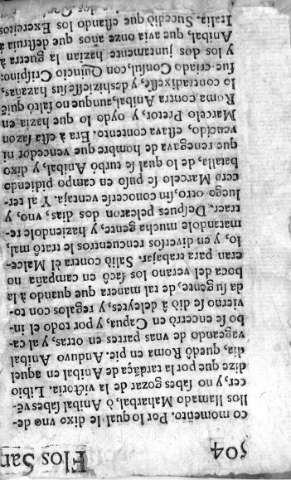 504 Flos San
co momento. Por lo qual le dixo vno de-
llos llamado Maharbal, ò Anibal sabes vē-
cer, y no sabes gozar de la victoria. Libio
dize que por la tardāça de Anibal en aquel
dia, quedò Roma en pie. Anduvo Anibal
vagueando de vnas partes en otras, y al ca-
bo se encerrò en Capua, y por todo el in-
vierno se diò à deleytes, y regalos con to-
da su gente, de tal manera que quando à la
boca del verano los sacò en campaña no
eran para trabajar. Saliò contra èl Marce-
lo, y en diversos rencuentros le tratò mal,
matandole mucha gente, y haziendole re-
traer. Despues pelearon dos dias, vno, y
luego otro, sin conocerse ventaja. Y al ter-
cero Marcelo se puso en campo pidiendo
batalla, de lo qual se turbò Anibal, y dixo
que renegava de hombre que vencedor ni
vencido, estava contento. Era à esta sazon
Marcelo Pretor, y oydo lo que hazia en
Roma contra Anibal, aunque no faltò quiē
lo contradixesse, y deshiziesse sus hazañas,
fue criado Consul, con Quincio Crispino;
y los dos juntamente hazian la guerra à
Anibal, que avia onze años que destruia à
Italia. Sucediò que estando los Exercitos